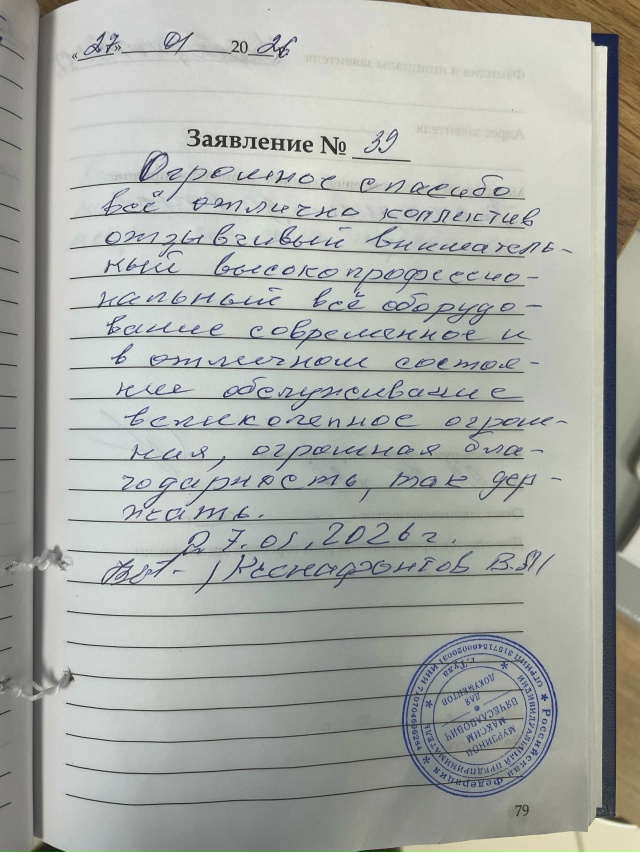 «27» 01 2026
Заявление № 39
Огромное спасибо
всё отлично коллектив
отзывчивый вниматель-
ный высокопрофессио-
нальный всё оборудо-
вание современное и
в отличном состоя-
нии обслуживание
великолепное огром-
ная, огромная бла-
годарность, так дер-
жать.
27.01.2026 г.
/Ксенафонтов В.Я/
Российская Федерация
ИНДИВИДУАЛЬНЫЙ ПРЕДПРИНИМАТЕЛЬ
г. Тула
МУРЗИНОВ
МАКСИМ
ВЯЧЕСЛАВОВИЧ
ДЛЯ
ДОКУМЕНТОВ
79